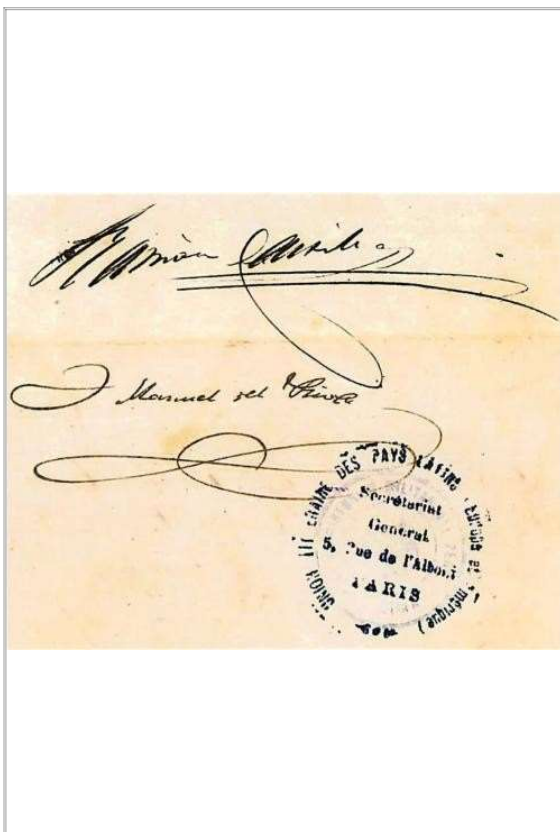 Ramón Castilla
Manuel del Río
UNION LITTÉRAIRE DES PAYS LATINS (EUROPE ET Amérique)
Secrétariat
General
5, Rue de l'Alboni
PARIS